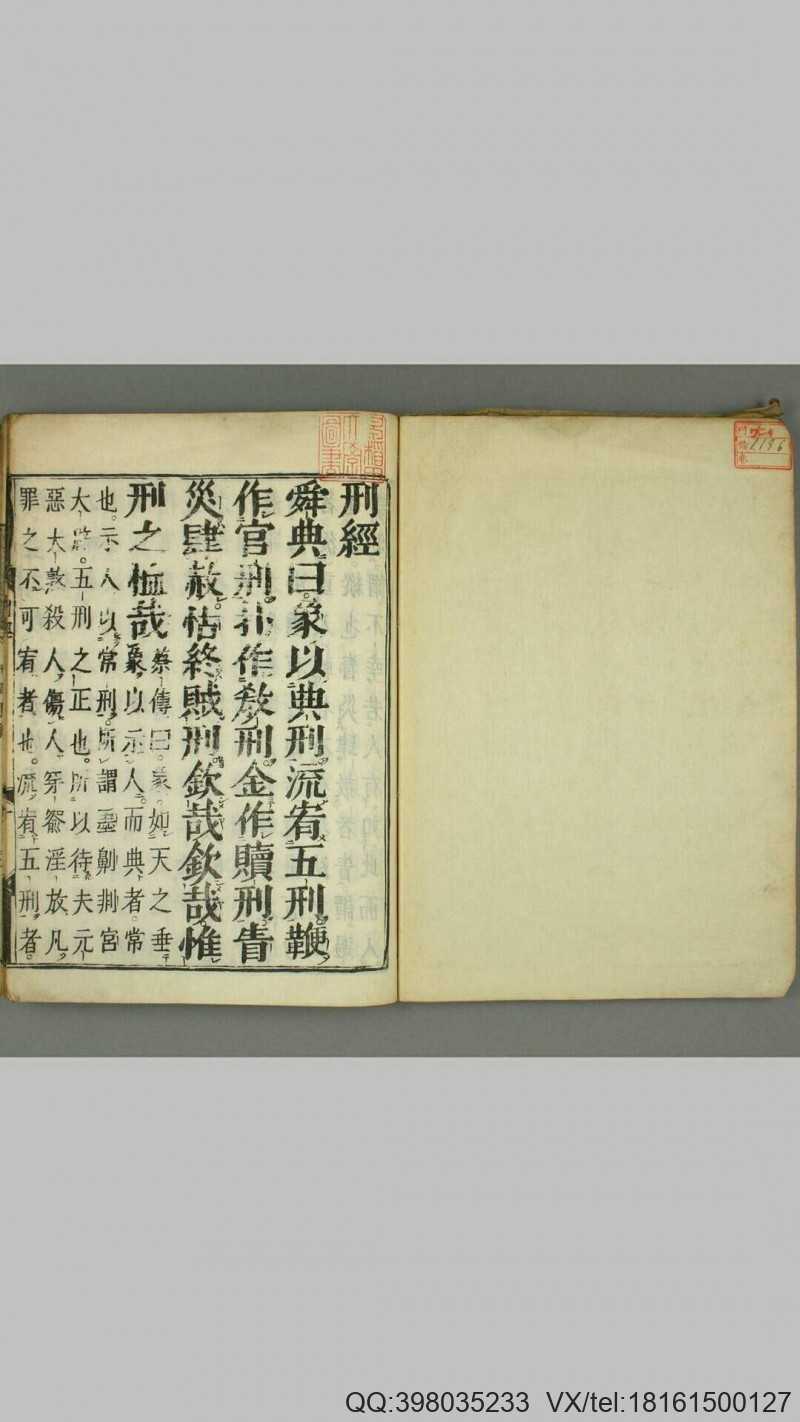 刑經
舜典曰象以典刑流宥五刑鞭
作官刑扑作教刑金作贖刑眚
災肆赦怙終賊刑欽哉欽哉惟
刑之恤哉
蔡傳曰象如天之垂
象以示人而典者常
也示人以常刑所謂墨劓剕宮
大辟五刑之正也所以待夫元
惡大憝殺人傷人穿窬淫放凡
罪之不可宥者也流宥五刑者
QQ:398035233 VX/tel:18161500127